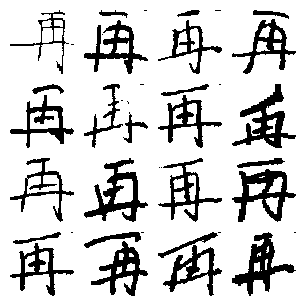 再再再再
再再再再
再再再再
再再再再